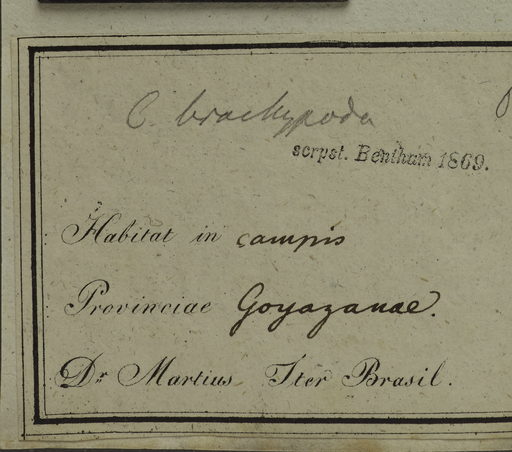 C. brachypoda
scrpst. Bentham 1869.
Habitat in campis
Provinciae Goyazanae.
Dr Martius Iter Brasil.